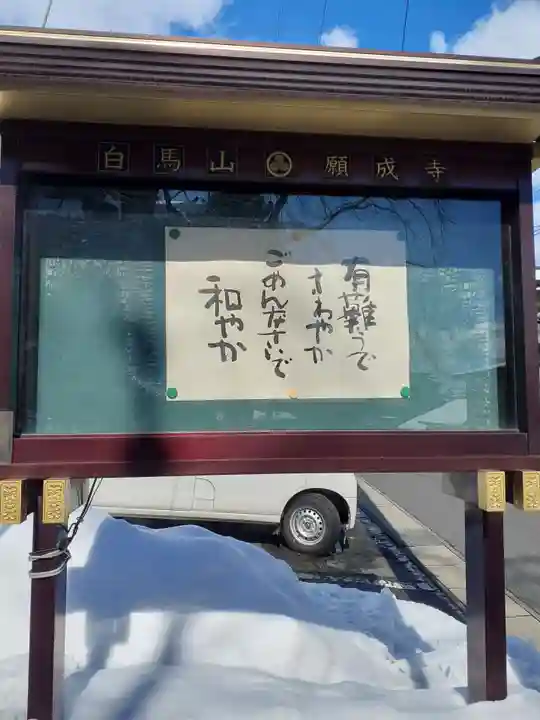 白馬山 願成寺
有難うで
さわやか
ごめんなさいで
和やか